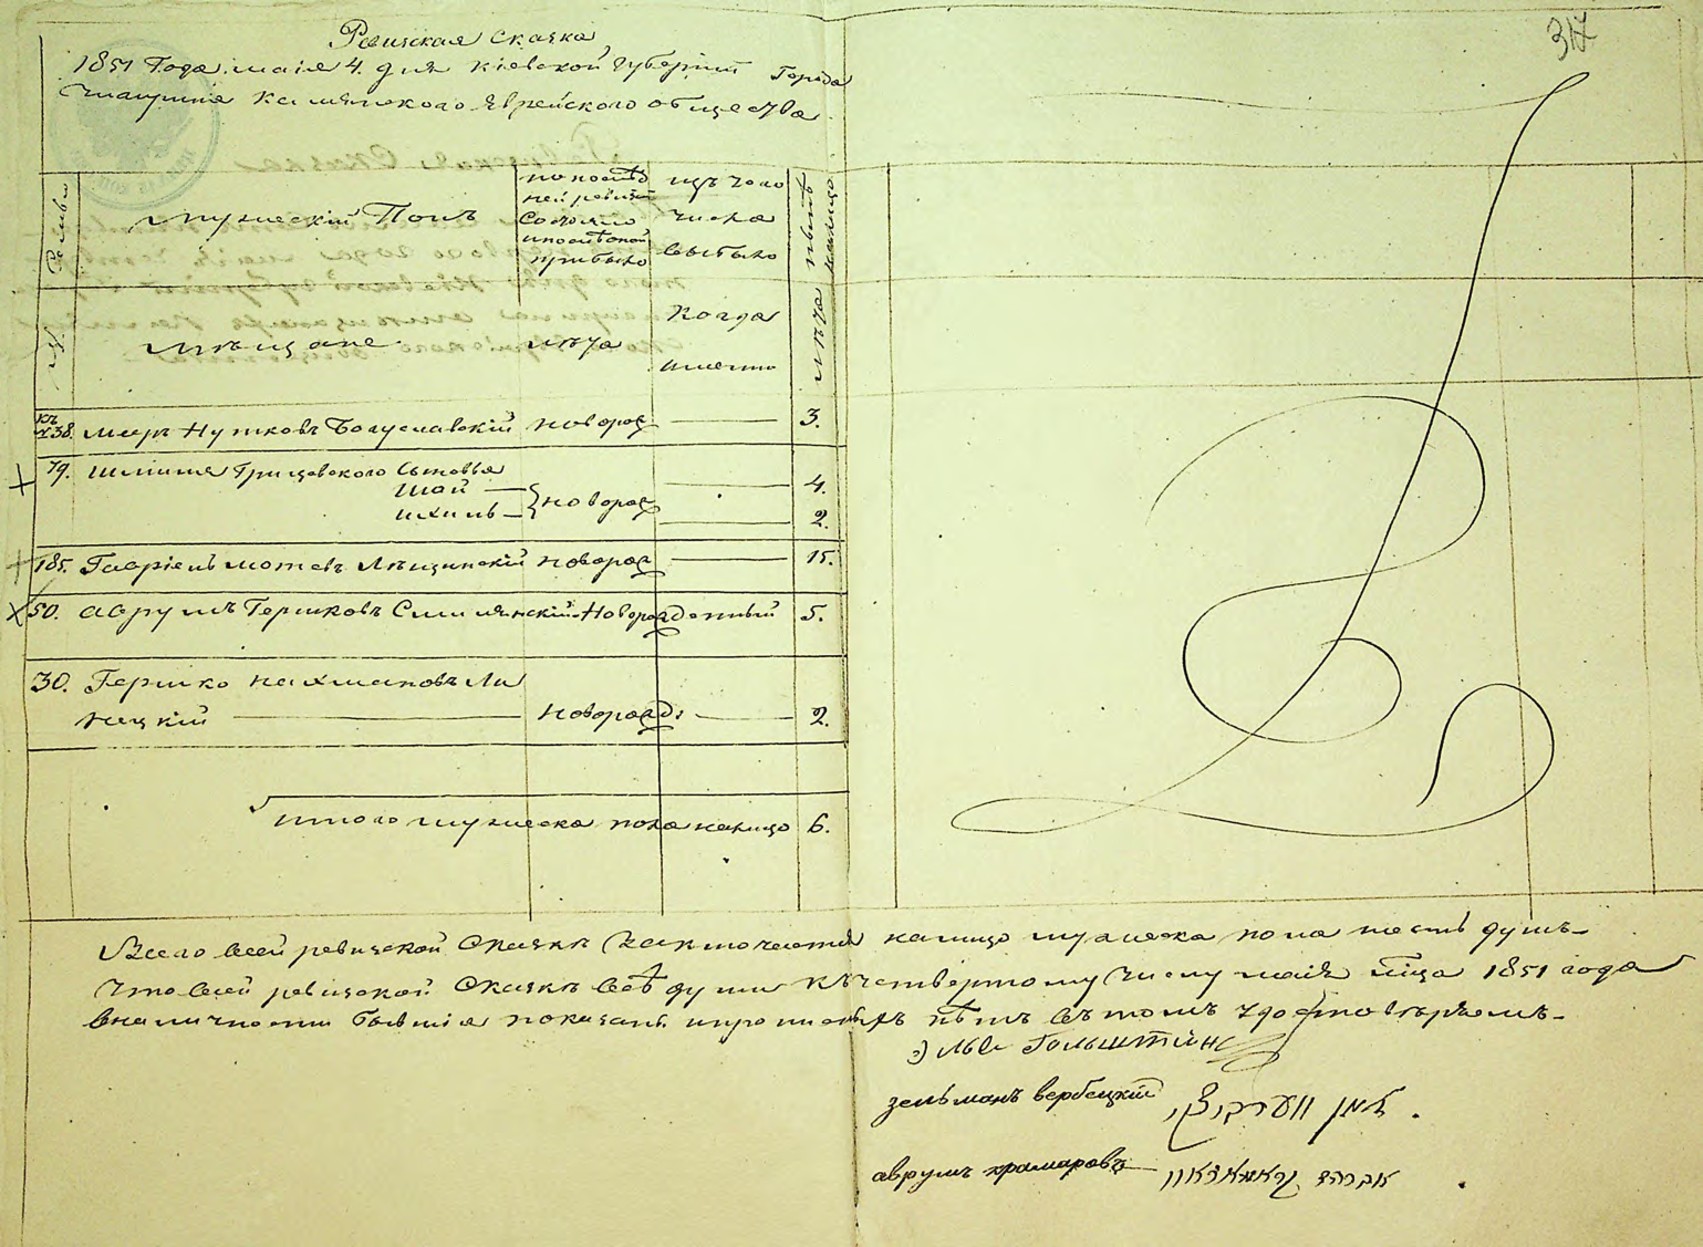 317
Ревизская Сказка
1851 Года маія 4. дня Кіевской Губерніи Города
Каменского Еврейского общества
Мужескій Полъ
по послѣд
ней ревизіи
Состояло
и послѣ оной
прибыло
изъ того
числа
выбыло
нынѣ
налицо
№
Мѣщане
лѣта
Когда
именно
лѣта
къ
№38. Меир Нутковъ Богуславскій новорож 3.
79. Шлиома Грицевского Сыновья
Шай
Ихиль новорож
4.
2.
185. Гавріель Мотевъ Лещинскій новорож 15.
50. Аврумъ Гершковъ Смилянскій Новорожденный 5.
30. Гершко Нахмановъ Ли
нецкій новорожд: 2.
Итого мужеска пола налицо 6.
Всего в сей ревизской Сказкѣ заключается налицо мужеска пола шесть душъ
Что в сей ревизской Сказкѣ всѣ души къ четвертому числу маія мѣсяца 1851 года
в наличности бывшія показаны и пропис нѣтъ въ томъ удостовѣряемъ
Гольштейнъ
зельманъ вербецкій זלמן ווערבוצקי
аврумъ крамаровъ אברהם קראמאראוו